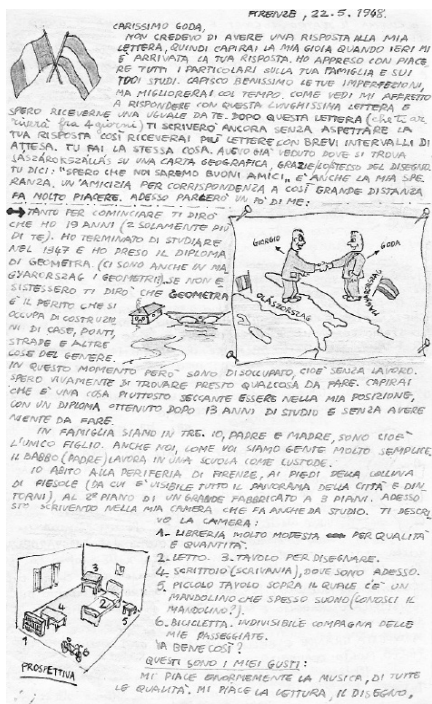 FIRENZE, 22.5.1968.
CARISSIMO GODA,
NON CREDEVO DI AVERE UNA RISPOSTA ALLA MIA
LETTERA, QUINDI CAPIRAI LA MIA GIOIA QUANDO IERI MI
È ARRIVATA LA TUA RISPOSTA. HO APPRESO CON PIACE-
RE TUTTI I PARTICOLARI SULLA TUA FAMIGLIA E SUI
TUOI STUDI. CAPISCO BENISSIMO LE TUE IMPERFEZIONI,
MA MIGLIORERAI COL TEMPO. COME VEDI MI AFFRETTO
A RISPONDERE CON QUESTA LUNGHISSIMA LETTERA E
SPERO RICEVERNE UNA UGUALE DA TE. DOPO QUESTA LETTERA (che ti ar-
4 giorni) TI SCRIVERÒ ANCORA SENZA ASPETTARE LA
TUA RISPOSTA COSÌ RICEVERAI PIÙ LETTERE CON BREVI INTERVALLI DI
ATTESA. TU FAI LA STESSA COSA. HO GIÀ VEDUTO DOVE SI TROVA
JÁSZÁROKSZÁLLÁS SU UNA CARTA GEOGRAFICA, GRAZIE LO STESSO DEL DISEGNO.
TU DICI: "SPERO CHE NOI SAREMO BUONI AMICI", È ANCHE LA MIA SPE-
RANZA. UN'AMICIZIA PER CORRISPONDENZA A COSÌ GRANDE DISTANZA
FA MOLTO PIACERE. ADESSO PARLERÒ UN PO' DI ME:
TANTO PER COMINCIARE TI DIRÒ
CHE HO 19 ANNI (2 SOLAMENTE PIÙ
DI TE). HO TERMINATO DI STUDIARE
NEL 1967 E HO PRESO IL DIPLOMA
DI GEOMETRA. (CI SONO ANCHE IN MA-
GYARORSZAG I GEOMETRI?). SE NON E-
SISTESSERO TI DIRÒ CHE GEOMETRA
È IL PERITO CHE SI
OCCUPA DI COSTRUZIO-
NI DI CASE, PONTI,
STRADE E ALTRE
COSE DEL GENERE.
GIORGIO
GODA
OLASZORSZAG
MAGYARORSZAG
IN QUESTO MOMENTO PERÒ SONO DISOCCUPATO, CIOÈ SENZA LAVORO.
SPERO VIVAMENTE DI TROVARE PRESTO QUALCOSA DA FARE. CAPIRAI
CHE È UNA COSA PIUTTOSTO SECCANTE ESSERE NELLA MIA POSIZIONE,
CON UN DIPLOMA OTTENUTO DOPO 13 ANNI DI STUDIO E SENZA AVERE
NIENTE DA FARE.
IN FAMIGLIA SIAMO IN TRE. IO, PADRE E MADRE, SONO CIOÈ
L'UNICO FIGLIO. ANCHE NOI, COME VOI SIAMO GENTE MOLTO SEMPLICE,
IL BABBO (PADRE) LAVORA IN UNA SCUOLA COME CUSTODE.
IO ABITO ALLA PERIFERIA DI FIRENZE, AI PIEDI DELLA COLLINA
DI FIESOLE (DA CUI È VISIBILE TUTTO IL PANORAMA DELLA CITTÀ E DIN-
TORNI), AL 2° PIANO DI UN GRANDE FABBRICATO A 3 PIANI. ADESSO
STO SCRIVENDO NELLA MIA CAMERA CHE FA ANCHE DA STUDIO. TI DESCRI-
VO LA CAMERA:
1- LIBRERIA MOLTO MODESTA PER QUALITÀ
E QUANTITÀ.
2- LETTO. 3- TAVOLO PER DISEGNARE.
4- SCRITTOIO (SCRIVANIA), DOVE SONO ADESSO.
5- PICCOLO TAVOLO SOPRA IL QUALE C'È UN
MANDOLINO CHE SPESSO SUONO (CONOSCI IL
MANDOLINO?).
6- BICICLETTA. INDIVISIBILE COMPAGNA DELLE
MIE PASSEGGIATE.
VA BENE COSÌ?
1
2
3
4
5
6
PROSPETTIVA
QUESTI SONO I MIEI GUSTI:
MI PIACE ENORMEMENTE LA MUSICA, DI TUTTE
LE QUALITÀ. MI PIACE LA LETTURA, IL DISEGNO,